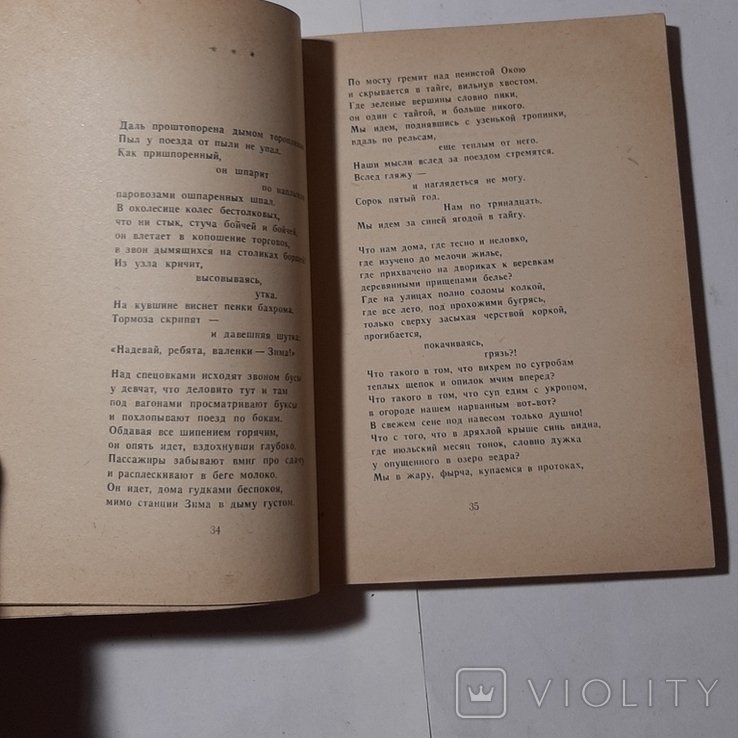 * * *
Даль проштопорена дымом
Пыл у поезда от пыли не упал.
Как пришпоренный,
он шпарит
по
паровозами ошпаренных шпал.
В околесице колес бестолковых,
что ни стык, стуча бойчей и бойчей,
он влетает в копошение торговок,
в звон дымящихся на столиках
Из узла кричит,
высовываясь,
утка.
На кувшине виснет пенки бахрома.
Тормоза скрипят —
и давешняя шутка:
«Надевай, ребята, валенки — Зима!»
Над спецовками исходят звоном бусы
у девчат, что деловито тут и там
под вагонами просматривают буксы
и похлопывают поезд по бокам.
Обдавая все шипением горячим,
он опять идет, вздохнувши глубоко.
Пассажиры забывают вмиг про сдачу
и расплескивают в беге молоко.
Он идет, дома гудками беспокоя,
мимо станции Зима в дыму густом.
34
По мосту гремит над пенистой Окою
и скрывается в тайге, вильнув хвостом.
Где зеленые вершины словно пики,
он один с тайгой, и больше никого.
Мы идем, поднявшись с узенькой тропинки,
вдаль по рельсам,
еще теплым от него.
Наши мысли вслед за поездом стремятся.
Вслед гляжу —
и наглядеться не могу.
Сорок пятый год.
Нам по тринадцать.
Мы идем за синей ягодой в тайгу.
Что нам дома, где тесно и неловко,
где изучено до мелочи жилье,
где прихвачено на двориках к веревкам
деревянными прищепами белье?
Где на улицах полно соломы колкой,
где все лето, под прохожими бугрясь,
только сверху засыхая черствой коркой,
прогибается,
покачиваясь,
грязь?!
Что такого в том, что вихрем по сугробам
теплых щепок и опилок мчим вперед?
Что такого в том, что суп едим с укропом,
в огороде нашем нарванным вот-вот?
В свежем сене под навесом только душно!
Что с того, что в дряхлой крыше синь видна,
где июльский месяц тонок, словно дужка
у опущенного в озеро ведра?
Мы в жару, фырча, купаемся в протоках,
35
VIOLITY